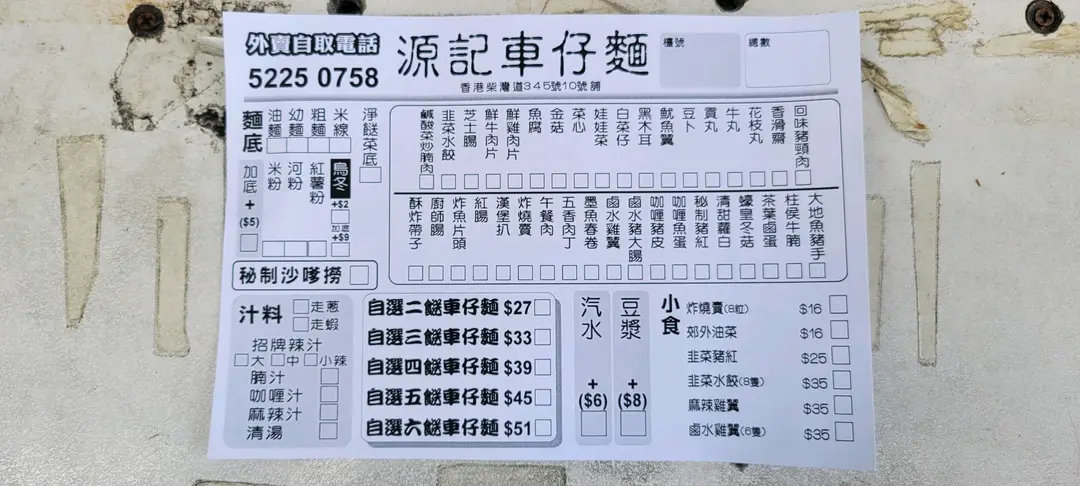 外賣自取電話
5225 0758
源記車仔麵
香港柴灣道345號10號舖
檯號
總數
麵底
油麵
幼麵
粗麵
米線
淨餸菜底
加底
+
($5)
米粉
河粉
紅薯粉
烏冬
+$2
加底
+$9
秘制沙嗲撈
鹹酸菜炒腩肉
韭菜水餃
芝士腸
鮮牛肉片
鮮雞肉片
魚腐
金菇
菜心
娃娃菜
白菜仔
黑木耳
魷魚翼
豆卜
貢丸
牛丸
花枝丸
香滑齋
回味豬頸肉
酥炸帶子
廚師腸
炸魚片頭
紅腸
漢堡扒
炸燒賣
午餐肉
五香肉丁
墨魚春卷
鹵水雞翼
鹵水豬大腸
咖喱豬皮
咖喱魚蛋
秘制豬紅
清甜蘿白
蠔皇冬菇
茶葉鹵蛋
柱侯牛腩
大地魚豬手
汁料
走蔥
走蝦
招牌辣汁
大 中 小辣
腩汁
咖喱汁
麻辣汁
清湯
自選二餸車仔麵 $27
自選三餸車仔麵 $33
自選四餸車仔麵 $39
自選五餸車仔麵 $45
自選六餸車仔麵 $51
汽水
+
($6)
豆漿
+
($8)
小食
炸燒賣(8粒) $16
郊外油菜 $16
韭菜豬紅 $25
韭菜水餃(8隻) $35
麻辣雞翼 $35
鹵水雞翼(6隻) $35